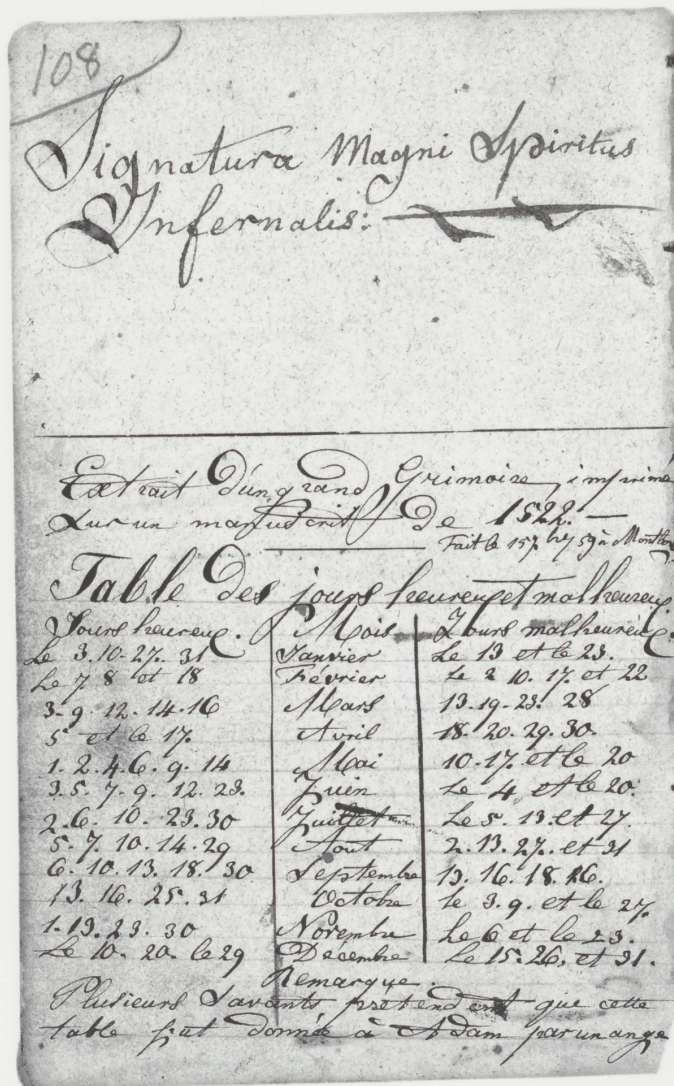 108
Signatura Magni Spiritus
Infernalis:
Extrait d'un grand Grimoire, imprimé
sur un manuscrit de 1522. —
Fait le à
Table Des jours heureux et malheureux.
Jours heureux. Mois Jours malheureux.
Le 3. 10. 27. 31 Janvier Le 13 et le 23.
Le 7 8 et 18 Février Le 2 10. 17. et 22
3. 9. 12. 14. 16 Mars 13. 19. 23. 28
5 et le 17. Avril 18. 20. 29. 30.
1. 2. 4. 6. 9. 14 Mai 10. 17. et le 20
3. 5. 7. 9. 12. 23. Juin Le 4 et le 20.
2. 6. 10. 23. 30 Juillet Le 5. 13. et 27
5. 7. 10. 14. 29 Aout 2. 13. 27. et 31
6. 10. 13. 18. 30 Septembre 13. 16. 18. 26.
13. 16. 25. 31 Octobre Le 3. 9. et le 27.
1. 13. 23. 30 Novembre Le 6 et le 23.
Le 10. 20. le 29 Decembre Le 15. 26. et 31.
Remarque.
Plusieurs Savants pretendent que cette
table fut donnée à Adam par un ange